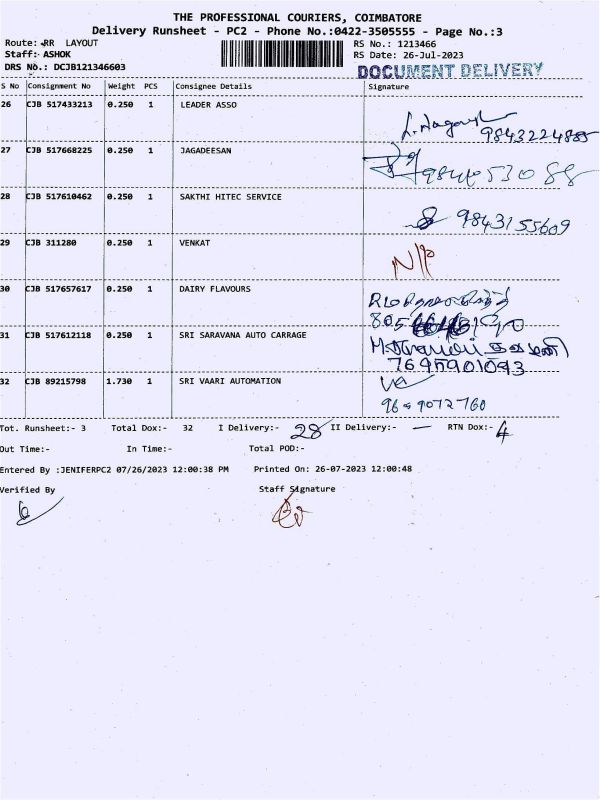 THE PROFESSIONAL COURIERS, COIMBATORE
Delivery Runsheet - PC2 - Phone No.:0422-3505555 - Page No.:3
Route: RR LAYOUT RS No.: 1213466
Staff: ASHOK RS Date: 26-Jul-2023
DRS No.: DCJB121346603 DOCUMENT DELIVERY
S No Consignment No Weight PCS Consignee Details Signature
26 CJB 517433213 0.250 1 LEADER ASSO
9843224885
27 CJB 517668225 0.250 1 JAGADEESAN
28 CJB 517610462 0.250 1 SAKTHI HITEC SERVICE
9843155609
29 CJB 311280 0.250 1 VENKAT
30 CJB 517657617 0.250 1 DAIRY FLAVOURS
31 CJB 517612118 0.250 1 SRI SARAVANA AUTO CARRAGE
7695901093
32 CJB 89215798 1.730 1 SRI VAARI AUTOMATION
Tot. Runsheet:- 3 Total Dox:- 32 I Delivery:- 28 II Delivery:- — RTN Dox:- 4
Out Time:- In Time:- Total POD:-
Entered By :JENIFERPC2 07/26/2023 12:00:38 PM Printed On: 26-07-2023 12:00:48
Verified By Staff Signature